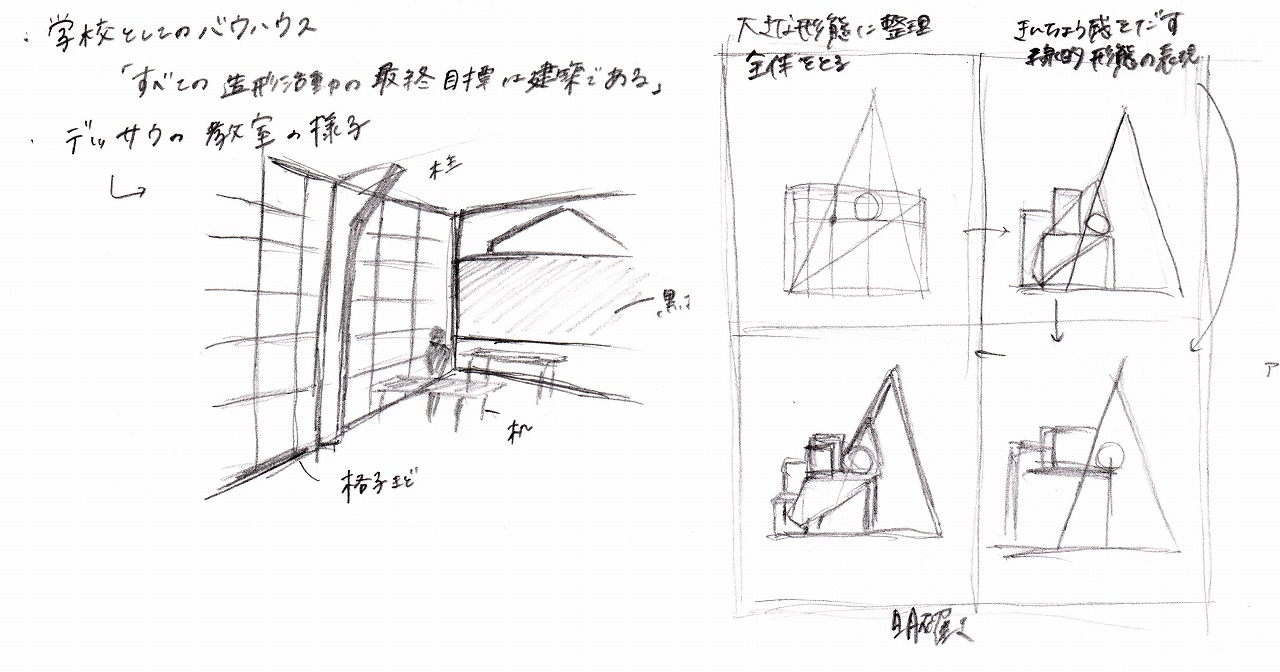 ・学校としてのバウハウス
「すべての造形活動の最終目標は建築である」
・デッサウの教室の様子
柱
机
格子まど
大きな形態に整理
全体をとる
きんちょう感をだす
線的形態の表現
ア